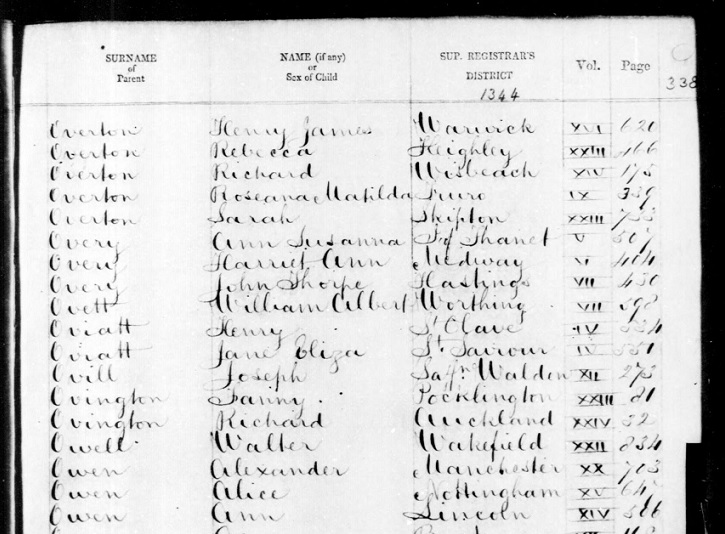 SURNAME of Parent NAME (if any) or Sex of Child SUP. REGISTRAR'S DISTRICT Vol. Page
1344 338
Overton Henry James Warwick XVI 620
Overton Rebecca Keighley XXIII 466
Overton Richard Wisbeach XIV 175
Overton Roseana Matilda Truro IX 339
Overton Sarah Skipton XXIII 733
Overy Ann Susanna I of Thanet V 507
Overy Harriet Ann Medway VI 404
Overy John Thorpe Hastings VII 430
Ovett William Albert Worthing VII 598
Oviatt Henry St Olave IV
Oviatt Jane Eliza St Saviour IV 551
Ovill Joseph Saffn Waldon XII 273
Ovington Fanny Pocklington XXIII 81
Ovington Richard Auckland XXIV 32
Owell Walter Wakefield XXII 834
Owen Alexander Manchester XX 703
Owen Alice Nottingham XV
Owen Ann Lincoln XIV